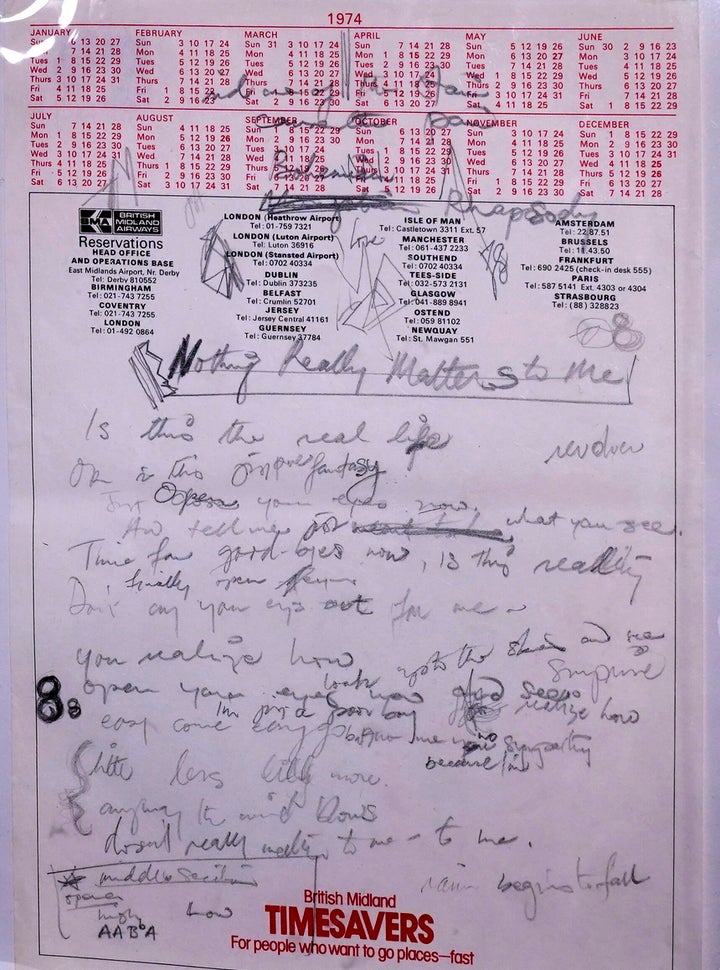 1974
JANUARY
Sun 6 13 20 27
Mon 7 14 21 28
Tues 1 8 15 22 29
Wed 2 9 16 23 30
Thurs 3 10 17 24 31
Fri 4 11 18 25
Sat 5 12 19 26
FEBRUARY
Sun 3 10 17 24
Mon 4 11 18 25
Tues 5 12 19 26
Wed 6 13 20 27
Thurs 7 14 21 28
Fri 1 8 15 22
Sat 2 9 16 23
MARCH
Sun 31 3 10 17 24
Mon 4 11 18 25
Tues 5 12 19 26
Wed 6 13 20 27
Thurs 7 14 21 28
Fri 1 8 15 22 29
Sat 2 9 16 23 30
APRIL
Sun 7 14 21 28
Mon 1 8 15 22 29
Tues 2 9 16 23 30
Wed 3 10 17 24
Thurs 4 11 18 25
Fri 5 12 19 26
Sat 6 13 20 27
MAY
Sun 5 12 19 26
Mon 6 13 20 27
Tues 7 14 21 28
Wed 1 8 15 22 29
Thurs 2 9 16 23 30
Fri 3 10 17 24 31
Sat 4 11 18 25
JUNE
Sun 30 2 9 16 23
Mon 3 10 17 24
Tues 4 11 18 25
Wed 5 12 19 26
Thurs 6 13 20 27
Fri 7 14 21 28
Sat 1 8 15 22 29
JULY
Sun 7 14 21 28
Mon 1 8 15 22 29
Tues 2 9 16 23 30
Wed 3 10 17 24 31
Thurs 4 11 18 25
Fri 5 12 19 26
Sat 6 13 20 27
AUGUST
Sun 4 11 18 25
Mon 5 12 19 26
Tues 6 13 20 27
Wed 7 14 21 28
Thurs 1 8 15 22 29
Fri 2 9 16 23 30
Sat 3 10 17 24 31
SEPTEMBER
Sun 1 8 15 22 29
Mon 2 9 16 23 30
Tues 3 10 17 24
Wed 4 11 18 25
Thurs 5 12 19 26
Fri 6 13 20 27
Sat 7 14 21 28
OCTOBER
Sun 6 13 20 27
Mon 7 14 21 28
Tues 1 8 15 22 29
Wed 2 9 16 23 30
Thurs 3 10 17 24 31
Fri 4 11 18 25
Sat 5 12 19 26
NOVEMBER
Sun 3 10 17 24
Mon 4 11 18 25
Tues 5 12 19 26
Wed 6 13 20 27
Thurs 7 14 21 28
Fri 1 8 15 22 29
Sat 2 9 16 23 30
DECEMBER
Sun 1 8 15 22 29
Mon 2 9 16 23 30
Tues 3 10 17 24 31
Wed 4 11 18 25
Thurs 5 12 19 26
Fri 6 13 20 27
Sat 7 14 21 28
Bohemian
Rhapsody
BMA BRITISH MIDLAND AIRWAYS
Reservations
HEAD OFFICE
AND OPERATIONS BASE
East Midlands Airport, Nr. Derby
Tel: Derby 810552
BIRMINGHAM
Tel: 021-743 7255
COVENTRY
Tel: 021-743 7255
LONDON
Tel: 01-492 0864
LONDON (Heathrow Airport)
Tel: 01-759 7321
LONDON (Luton Airport)
Tel: Luton 36916
LONDON (Stansted Airport)
Tel: 0702 40334
DUBLIN
Tel: Dublin 373235
BELFAST
Tel: Crumlin 52701
JERSEY
Tel: Jersey Central 41161
GUERNSEY
Tel: Guernsey 37784
Love
ISLE OF MAN
Tel: Castletown 3311 Ext. 57
MANCHESTER
Tel: 061-437 2233
SOUTHEND
Tel: 0702 40334
TEES-SIDE
Tel: 032-573 2131
GLASGOW
Tel: 041-889 8941
OSTEND
Tel: 059 81102
NEWQUAY
Tel: St. Mawgan 551
AMSTERDAM
Tel: 22.87.51
BRUSSELS
Tel: 11.43.50
FRANKFURT
Tel: 690 2425 (check-in desk 555)
PARIS
Tel: 587 5141 Ext. 4303 or 4304
STRASBOURG
Tel: (88) 328823
8
Nothing Really Matters to Me
Is this the real life
revolver
Or is this just fantasy
Just Open your eyes now,
And tell me what you see.
Time for good-byes now, is this reality
finally open
Don't cry your eyes out for me
you realize how
look upto the skies and see
open your eyes now
Surprise
I'm just a poor boy
realize how
8 8
easy come easy go
no sympathy
because I'm
little less little more.
anyway the wind blows
doesn't really matter to me - to me.
middle section
rain begins to fall
opera
how
AABA
British Midland
TIMESAVERS
For people who want to go places—fast